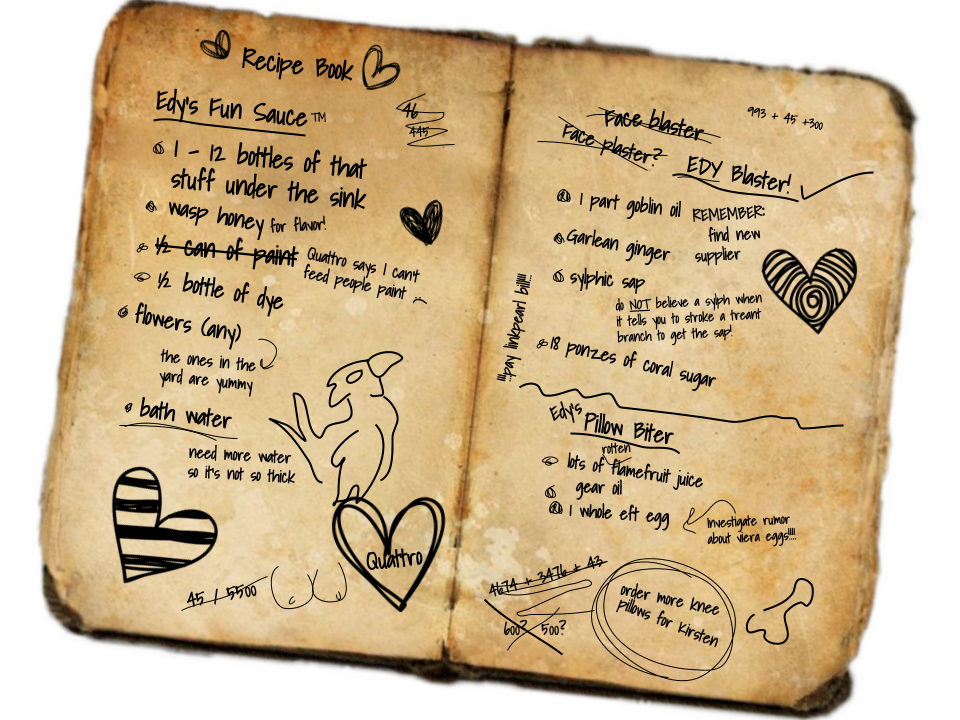 Recipe Book
Edy's Fun Sauce™
46
445
1 - 12 bottles of that
stuff under the sink
wasp honey for flavor!
½ can of paint
Quattro says I can't
feed people paint
½ bottle of dye
flowers (any)
the ones in the
yard are yummy
bath water
need more water
so it's not so thick
Quattro
45 / 5500
Face blaster
Face plaster?
EDY Blaster!
993 + 45 +300
1 part goblin oil
REMEMBER:
find new
supplier
Garlean ginger
sylphic sap
do NOT believe a sylph when
it tells you to stroke a treant
branch to get the sap!
!!!pay linkpearl bill!!!
18 ponzes of coral sugar
Edy's Pillow Biter
rotten
lots of flamefruit juice
gear oil
1 whole eft egg
investigate rumor
about viera eggs!!!!
4674 + 3476 + 43
600? 500?
order more knee
pillows for Kirsten